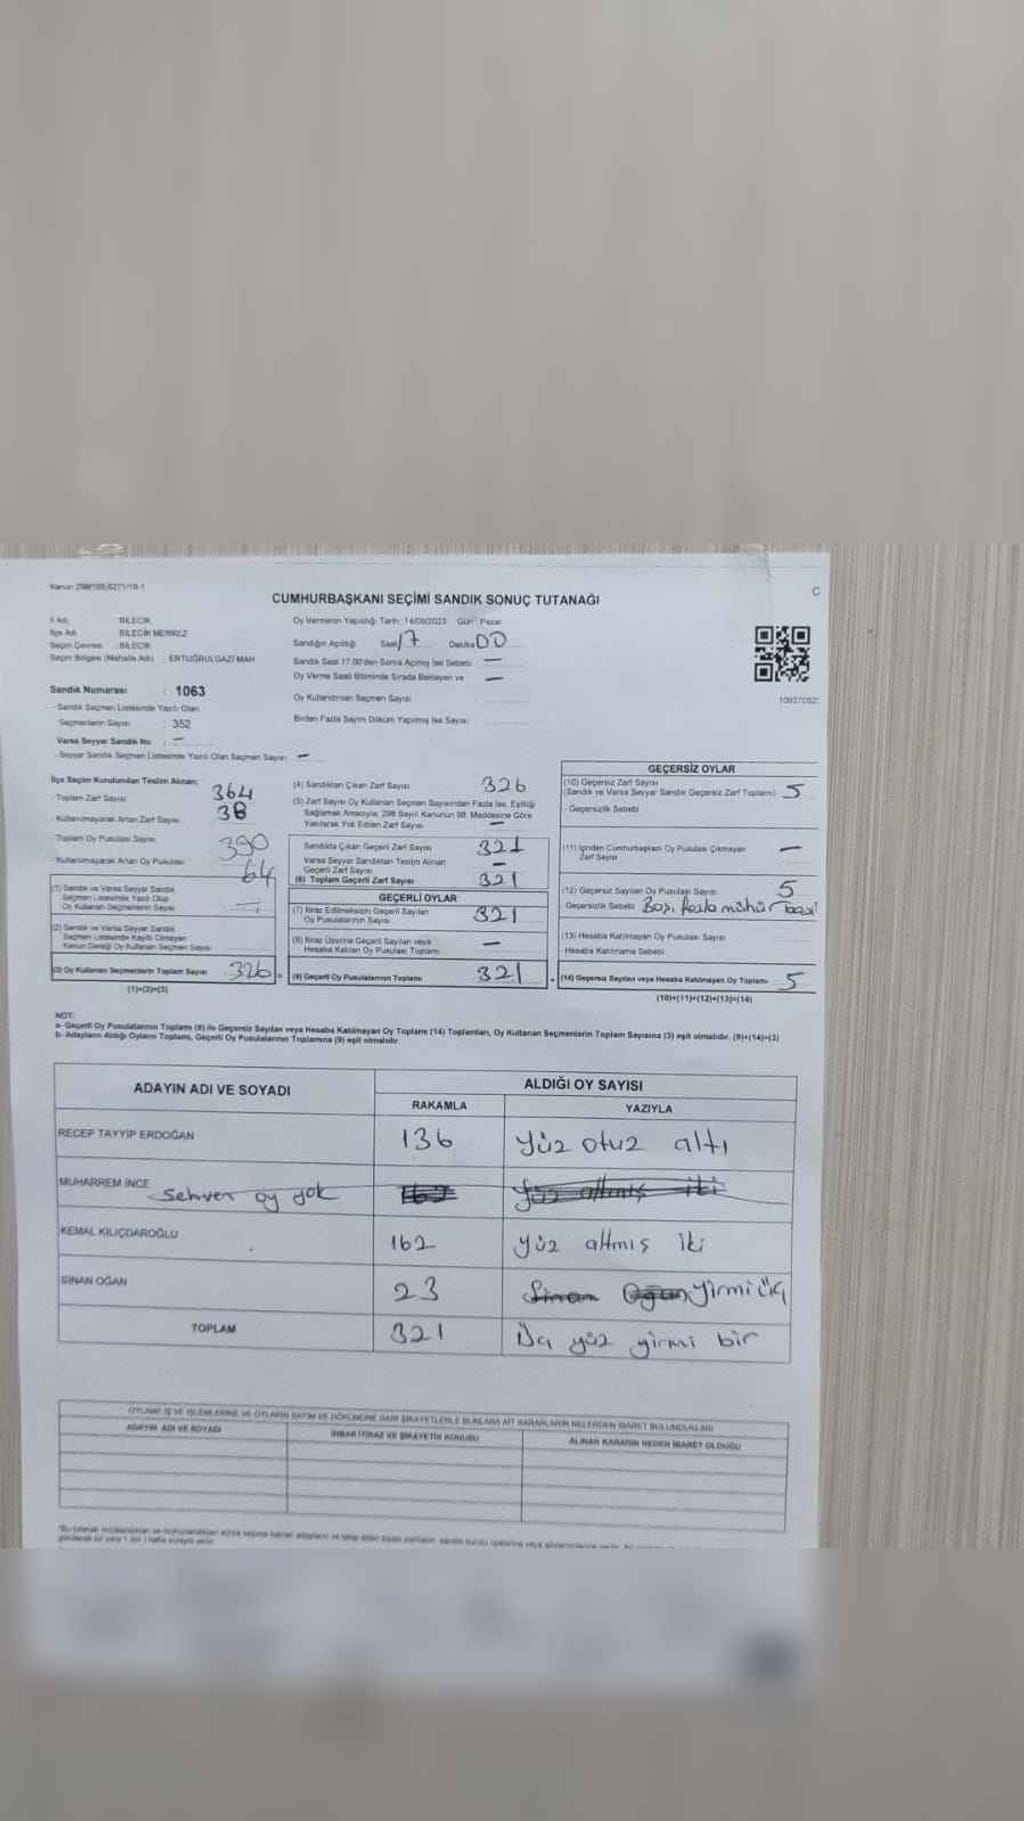 Kanun 298/105,6271/19-1
C
CUMHURBAŞKANI SEÇİMİ SANDIK SONUÇ TUTANAĞI
İl Adı : BİLECİK
İlçe Adı : BİLECİK MERKEZ
Seçim Çevresi : BİLECİK
Seçim Bölgesi (Mahalle Adı) : ERTUĞRULGAZİ MAH.
Sandık Numarası : 1063
- Sandık Seçmen Listesinde Yazılı Olan
Seçmenlerin Sayısı : 352
Varsa Seyyar Sandık No : -
- Seyyar Sandık Seçmen Listesinde Yazılı Olan Seçmen Sayısı: -
Oy Vermenin Yapıldığı Tarih: 14/05/2023 Gün: Pazar
Sandığın Açıldığı Saat 17 Dakika 00
Sandık Saat 17.00'den Sonra Açılmış İse Sebebi: -
Oy Verme Saati Bitiminde Sırada Bekleyen ve -
Oy Kullandırılan Seçmen Sayısı
Birden Fazla Sayım Döküm Yapılmış İse Sayısı:
İlçe Seçim Kurulundan Teslim Alınan;
- Toplam Zarf Sayısı 364
- Kullanılmayarak Artan Zarf Sayısı 38
Toplam Oy Pusulası Sayısı 390
Kullanılmayarak Artan Oy Pusulası 64
(1) Sandık ve Varsa Seyyar Sandık
Seçmen Listesinde Yazılı Olup
Oy Kullanan Seçmenlerin Sayısı
(2) Sandık ve Varsa Seyyar Sandık
Seçmen Listesinde Kayıtlı Olmayan
Kanun Gereği Oy Kullanan Seçmen Sayısı
(3) Oy Kullanan Seçmenlerin Toplam Sayısı 326
(1)+(2)=(3)
(4) Sandıktan Çıkan Zarf Sayısı 326
(5) Zarf Sayısı Oy Kullanan Seçmen Sayısından Fazla İse, Eşitliği
Sağlamak Amacıyla, 298 Sayılı Kanunun 98. Maddesine Göre
Yakılarak Yok Edilen Zarf Sayısı -
Sandıkta Çıkan Geçerli Zarf Sayısı 321
Varsa Seyyar Sandıktan Teslim Alınan
Geçerli Zarf Sayısı -
(6) Toplam Geçerli Zarf Sayısı 321
GEÇERLİ OYLAR
(7) İtiraz Edilmeksizin Geçerli Sayılan
Oy Pusulalarının Sayısı 321
(8) İtiraz Üzerine Geçerli Sayılan veya
Hesaba Katılan Oy Pusulası Toplamı -
(9) Geçerli Oy Pusulalarının Toplamı 321
GEÇERSİZ OYLAR
(10) Geçersiz Zarf Sayısı
(Sandık ve Varsa Seyyar Sandık Geçersiz Zarf Toplamı) 5
- Geçersizlik Sebebi
(11) İçinden Cumhurbaşkanı Oy Pusulası Çıkmayan
Zarf Sayısı -
(12) Geçersiz Sayılan Oy Pusulası Sayısı 5
Geçersizlik Sebebi Boş, fazla mühür
(13) Hesaba Katılmayan Oy Pusulası Sayısı
Hesaba Katılmama Sebebi
(14) Geçersiz Sayılan veya Hesaba Katılmayan Oy Toplamı 5
(10)+(11)+(12)+(13)=(14)
NOT:
a- Geçerli Oy Pusulalarının Toplamı (9) ile Geçersiz Sayılan veya Hesaba Katılmayan Oy Toplamı (14) Toplamları, Oy Kullanan Seçmenlerin Toplam Sayısına (3) eşit olmalıdır. (9)+(14)=(3)
b- Adayların Aldığı Oyların Toplamı, Geçerli Oy Pusulalarının Toplamına (9) eşit olmalıdır.
ADAYIN ADI VE SOYADI
ALDIĞI OY SAYISI
RAKAMLA YAZIYLA
RECEP TAYYİP ERDOĞAN 136 Yüz otuz altı
MUHARREM İNCE Sehven oy yok 162 Yüz altmış iki
KEMAL KILIÇDAROĞLU 162 Yüz altmış iki
SİNAN OĞAN 23 Sinan Oğan Yirmi üç
TOPLAM 321 Üç yüz yirmi bir
OYLAMA İŞ VE İŞLEMLERİNE VE OYLARIN SAYIM VE DÖKÜMÜNE DAİR ŞİKAYETLERLE BUNLARA AİT KARARLARIN NELERDEN İBARET BULUNDUKLARI
ADAYIN ADI VE SOYADI
İHBAR İTİRAZ VE ŞİKAYETİN KONUSU
ALINAN KARARIN NEDEN İBARET OLDUĞU